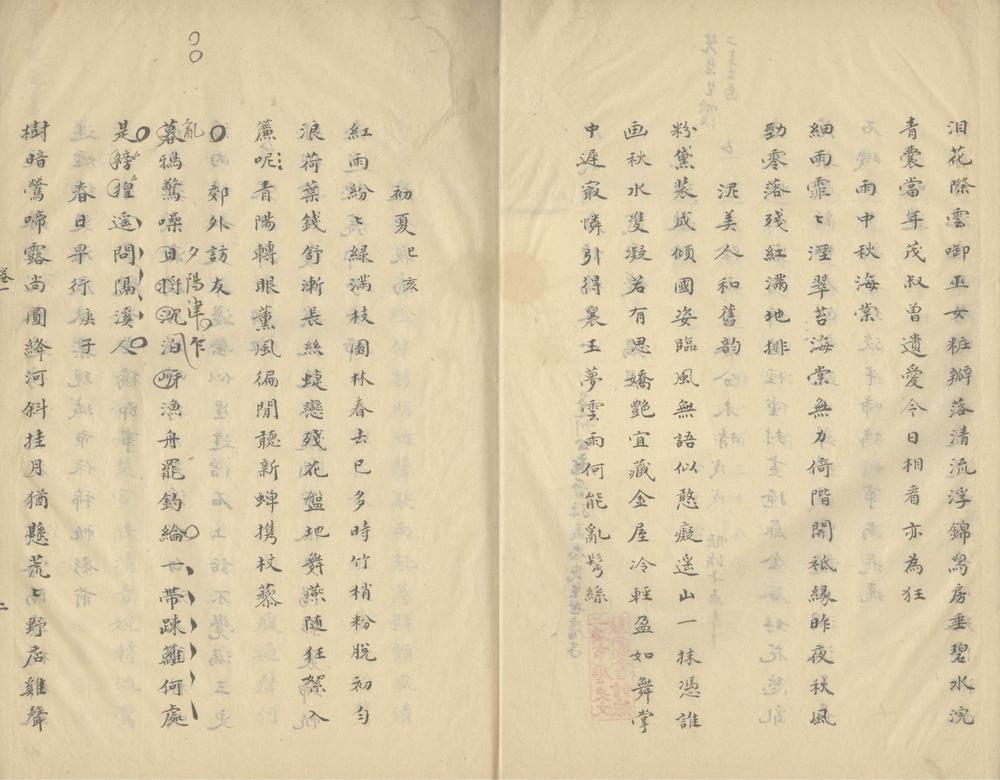 泪花際雲啣巫女粧瓣落清流浮錦舃房垂碧水浣
青裳當年茂叔曽遺愛今日相看亦為狂
雨中秋海棠
細雨霏〻溼翠苔海棠無力倚階開祇緣昨夜秋風
勁零落殘紅滿地排
泥美人和舊韵
粉黛装成傾國姿臨風無語似憨癡遥山一抹憑誰
画秋水雙凝若有思嬌艷宜藏金屋冷輕盈如舞掌
中遲㝡憐引得襄王夢雲雨何能亂鬢絲
初夏 己亥
紅雨紛〻綠滿枝園林春去已多時竹梢粉脫初勻
浪荷葉錢舒漸長絲蜨戀殘花盤地舞燕随狂絮入
簾呢青陽轉眼薫風徧閒聽新蟬携杖藜
郊外訪友
暮鴉驚噪日將沉泊岍漁舟罷釣綸一帶疎籬何處
亂
夕陽津乍
是徬徨遥問隔溪人
春日早行 庚子
樹暗鶯啼露尚圓絳河斜挂月猶懸荒〻野店雞聲
卷一
二